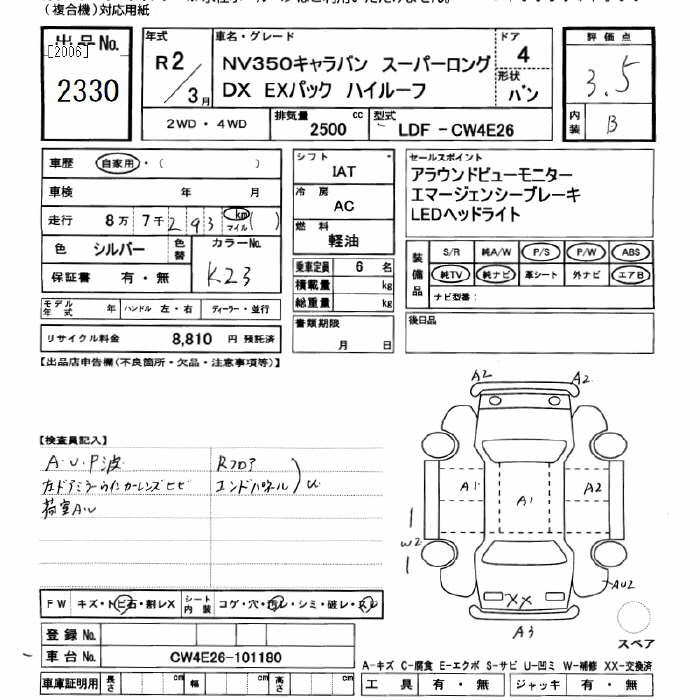 （複合機）対応用紙
出品No.
[2006]
2330
年式
R2/3月
車名・グレード
NV350キャラバン スーパーロング
DX EXパック ハイルーフ
ドア
4
形状
バン
評価点
3.5
内装
B
2WD・4WD
排気量 2500 cc
型式 LDF-CW4E26
車歴 自家用・（ ）
車検 年 月
走行 8万 7千 293 km マイル( )
色 シルバー 色替
カラーNo.
K23
保証書 有・無
モデル年式 年 ハンドル 左・右 ディーラー・並行
リサイクル料金 8,810 円 預託済
シフト
IAT
冷房
AC
燃料
軽油
乗車定員 6 名
積載量 kg
総重量 kg
書類期限
月 日
セールスポイント
アラウンドビューモニター
エマージェンシーブレーキ
LEDヘッドライト
装備品
S/R 純A/W P/S P/W ABS
純TV 純ナビ 革シート 外ナビ エアB
ナビ型番：
後日品
【出品店申告欄（不良箇所・欠品・注意事項等）】
【検査員記入】
A・U・P波 Rフロア
左ドアミラーウインカーレンズヒビ エンドパネル )U
荷室A・U
A2 A2
A1 A1 A2
W2
AU2
XX
A3
スペア
FW キズ・トビ石・割レX シート内装 コゲ・穴・汚レ・シミ・破レ・スレ
登録No.
車台No. CW4E26-101180
車庫証明用 長さ cm 幅 cm 高さ cm
A-キズ C-腐食 E-エクボ S-サビ U-凹ミ W-補修 XX-交換済
工具 有・無 ジャッキ 有・無